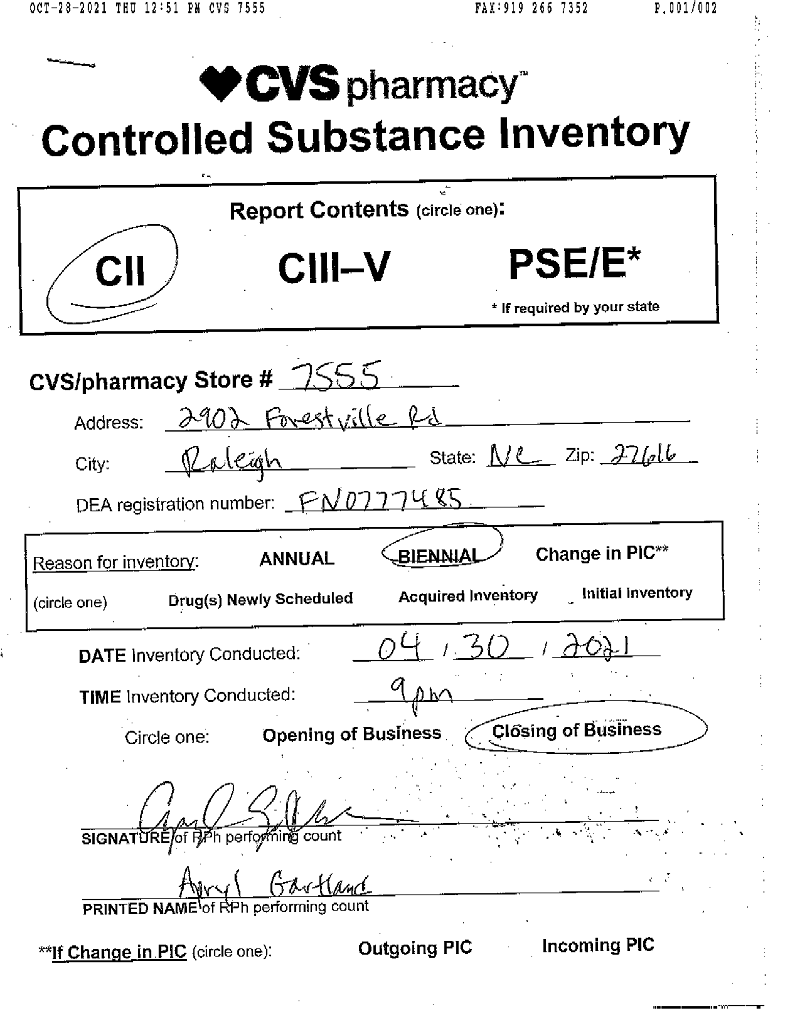 OCT-28-2021 THU 12:51 PM CVS 7555 FAX:919 266 7352 P.001/002
CVS pharmacy™
Controlled Substance Inventory
Report Contents (circle one):
CII CIII–V PSE/E*
* If required by your state
CVS/pharmacy Store # 7555
Address: 2902 Forestville Rd
City: Raleigh State: NC Zip: 27616
DEA registration number: FN0777485
Reason for inventory: ANNUAL BIENNIAL Change in PIC**
(circle one) Drug(s) Newly Scheduled Acquired Inventory Initial Inventory
DATE Inventory Conducted: 04 / 30 / 2021
TIME Inventory Conducted: 9pm
Circle one: Opening of Business Closing of Business
SIGNATURE of RPh performing count
Apryl Gartland
PRINTED NAME of RPh performing count
**If Change in PIC (circle one): Outgoing PIC Incoming PIC